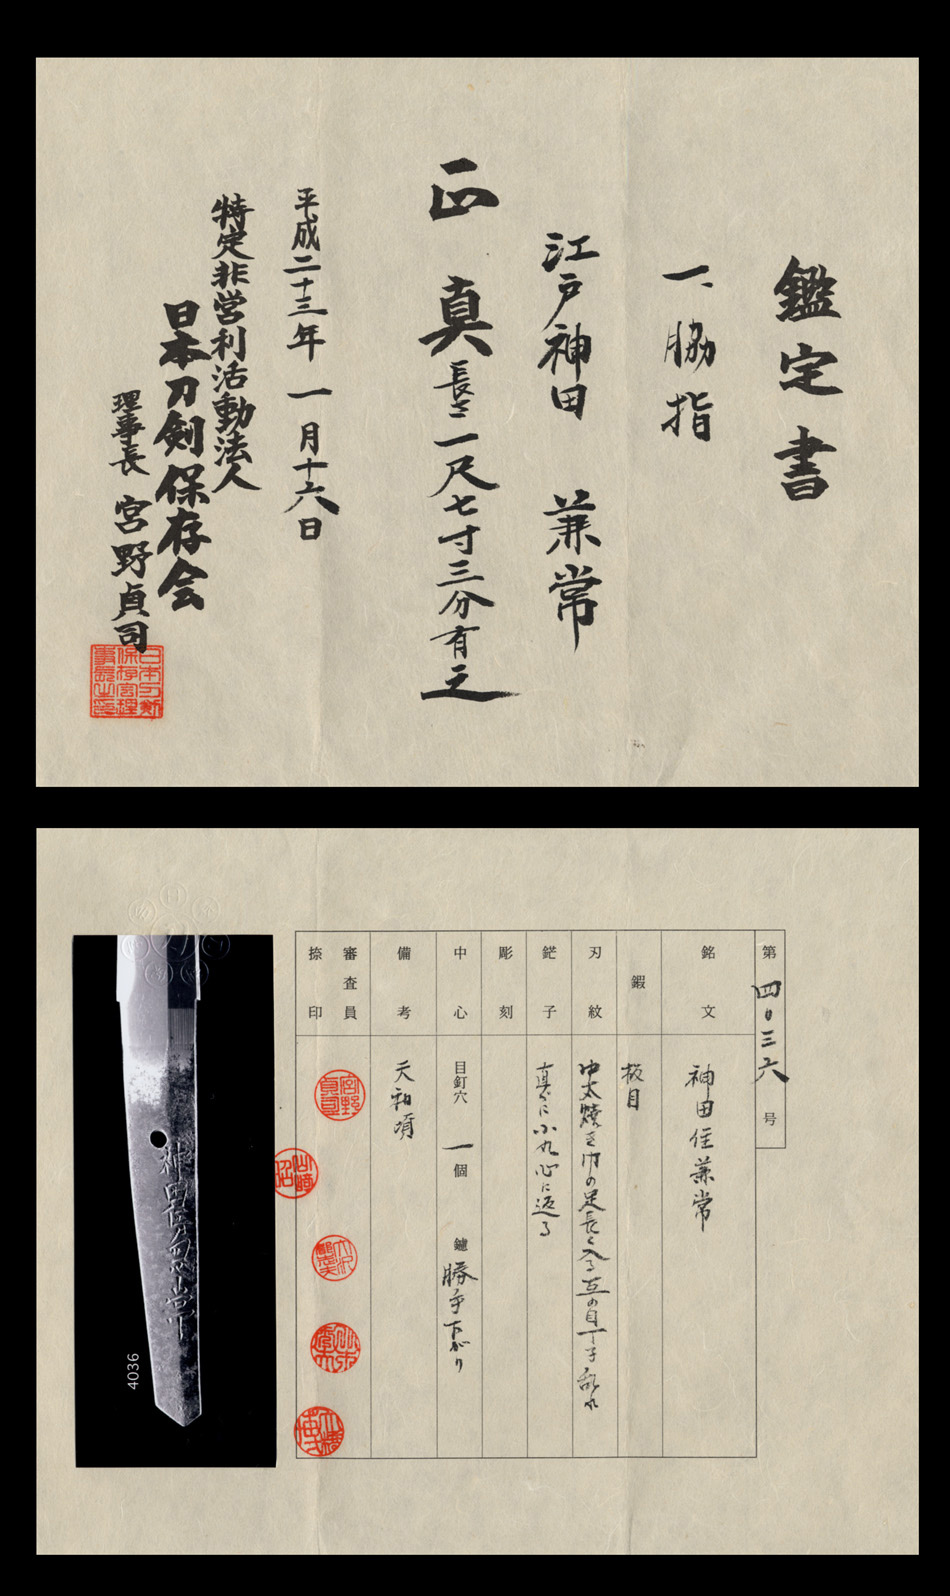 鑑定書
一、脇指
江戸神田 兼常
正真 長さ一尺七寸三分有之
平成二十三年一月十六日
特定非営利活動法人
日本刀剣保存会
理事長 宮野貞司
第四〇三六号
銘文 神田住兼常
鍜 板目
刃紋 中太焼き巾の足長く入る互の目丁子乱れ
鋩子 直ぐに小丸心に返る
彫刻
中心 目釘穴 一個 鑢 勝手下がり
備考 天和頃
審査員
捺印
神田住兼常
4036